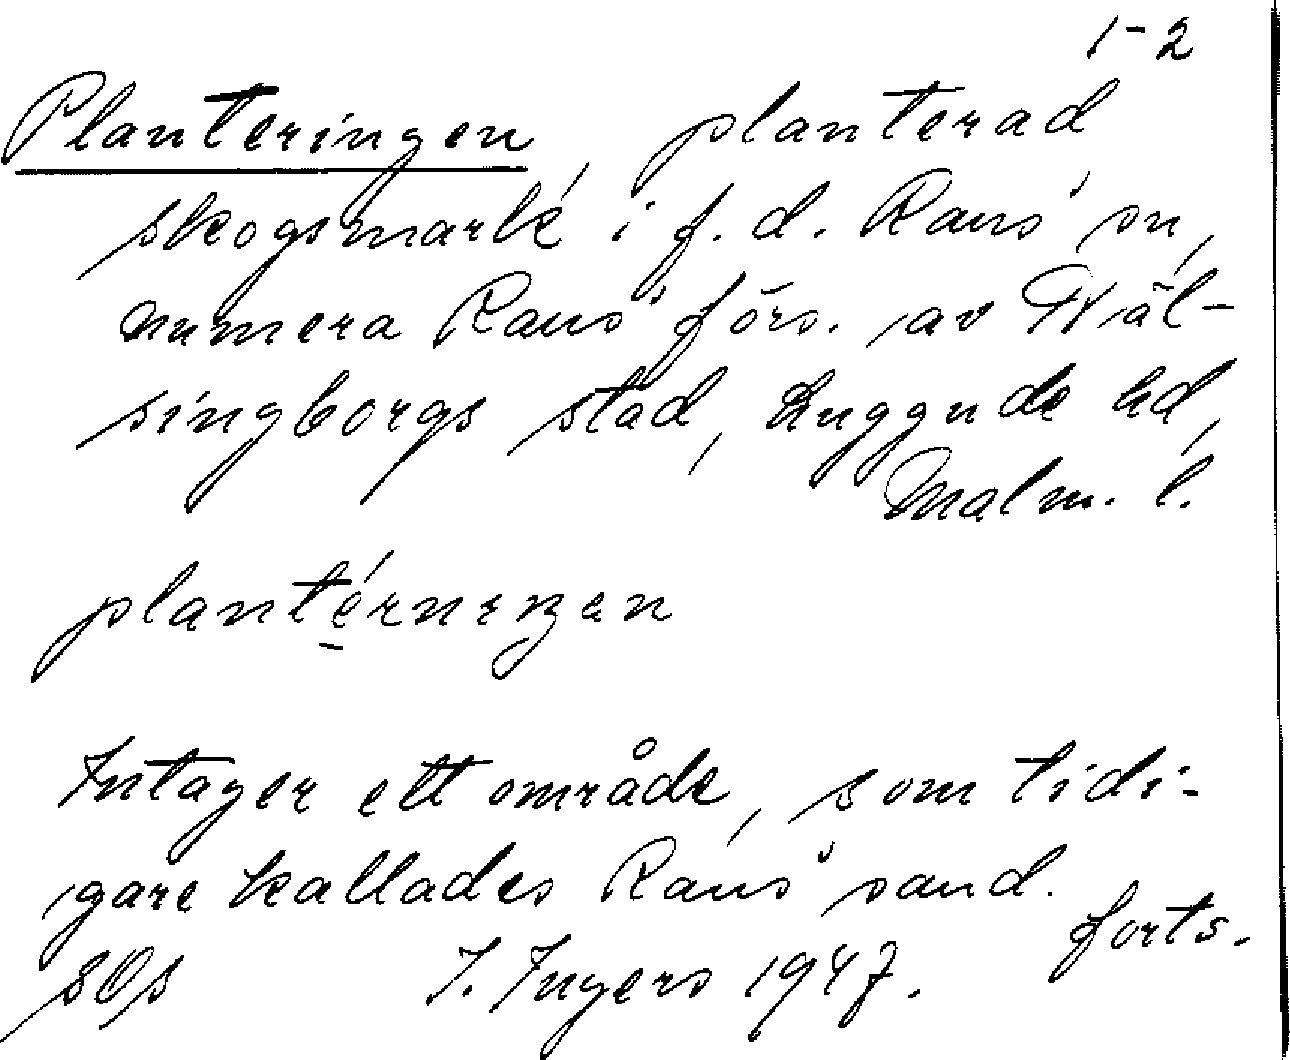 1-2
Planteringen, planterad
skogsmark i f.d. Raus' sn,
numera Raus' förs. av Häl-
singborgs stad, Luggude hd,
Malm. l.
Intager ett område, som tidi-
gare kallades Raus' sand.
forts.
I. Ingers 1947.